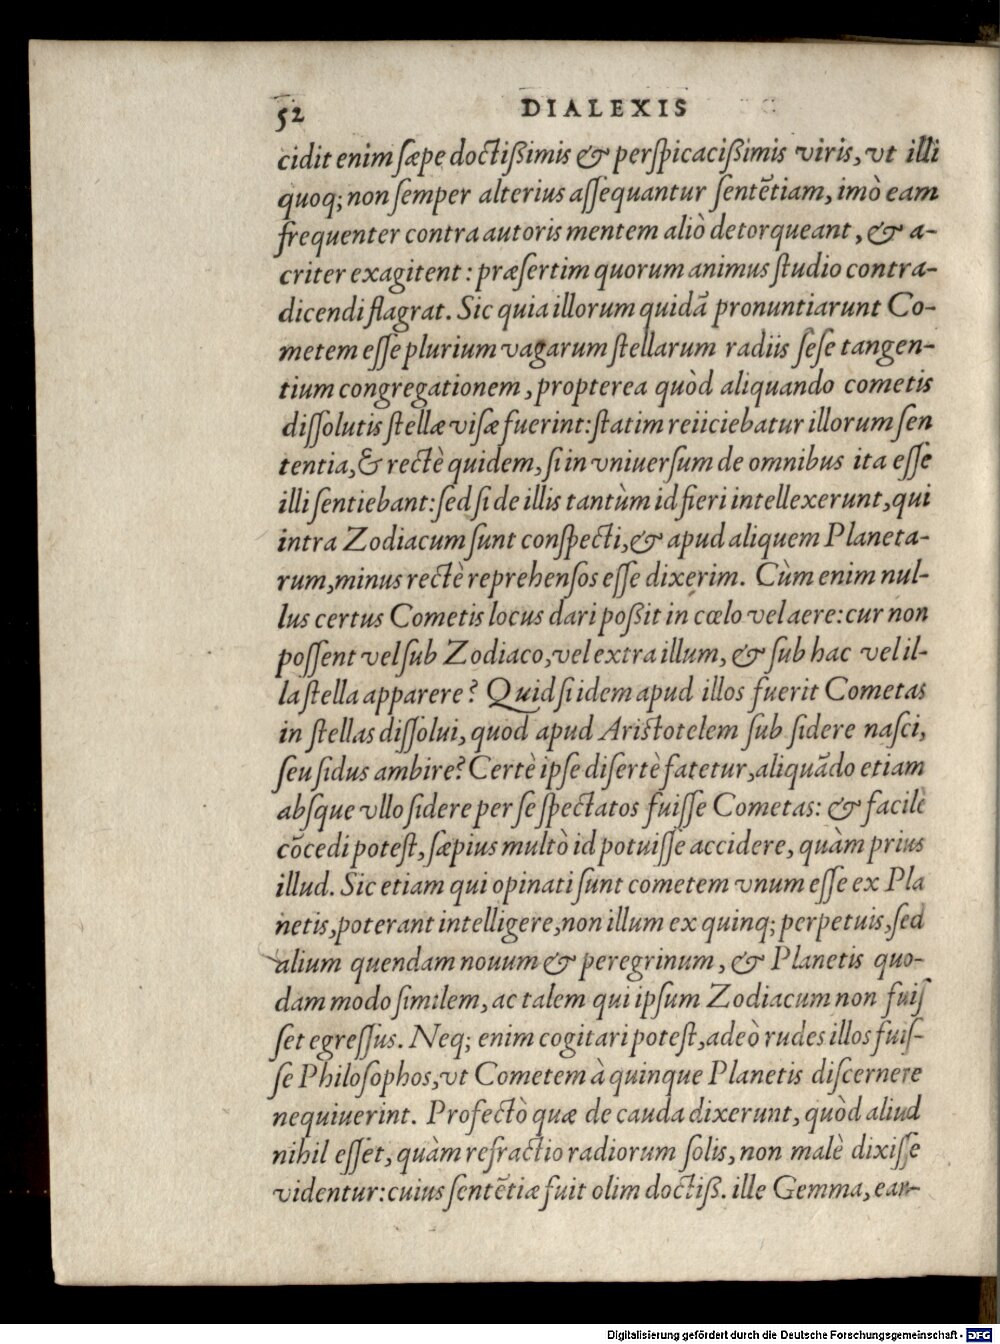 52 DIALEXIS
cidit enim sæpe doctißimis & perspicacißimis viris, vt illi
quoq; non semper alterius assequantur sentẽtiam, imò eam
frequenter contra autoris mentem aliò detorqueant, & a-
criter exagitent: præsertim quorum animus studio contra-
dicendi flagrat. Sic quia illorum quidã pronuntiarunt Co-
metem esse plurium vagarum stellarum radiis sese tangen-
tium congregationem, propterea quòd aliquando cometis
dissolutis stellæ visæ fuerint: statim reiiciebatur illorum sen
tentia, & rectè quidem, si in vniuersum de omnibus ita esse
illi sentiebant: sed si de illis tantùm id fieri intellexerunt, qui
intra Zodiacum sunt conspecti, & apud aliquem Planeta-
rum, minus rectè reprehensos esse dixerim. Cùm enim nul-
lus certus Cometis locus dari poßit in cœlo vel aere: cur non
possent vel sub Zodiaco, vel extra illum, & sub hac vel il-
la stella apparere? Quid si idem apud illos fuerit Cometas
in stellas dissolui, quod apud Aristotelem sub sidere nasci,
seu sidus ambire? Certè ipse disertè fatetur, aliquãdo etiam
absque vllo sidere per se spectatos fuisse Cometas: & facilè
cõcedi potest, sæpius multò id potuisse accidere, quàm prius
illud. Sic etiam qui opinati sunt cometem vnum esse ex Pla
netis, poterant intelligere, non illum ex quinq; perpetuis, sed
alium quendam nouum & peregrinum, & Planetis quo-
dam modo similem, ac talem qui ipsum Zodiacum non fuis
set egressus. Neq; enim cogitari potest, adeò rudes illos fuis-
se Philosophos, vt Cometem à quinque Planetis discernere
nequiuerint. Profectò quæ de cauda dixerunt, quòd aliud
nihil esset, quàm refractio radiorum solis, non malè dixisse
videntur: cuius sentẽtiæ fuit olim doctiß. ille Gemma, ean-
Digitalisierung gefördert durch die Deutsche Forschungsgemeinschaft - DFG